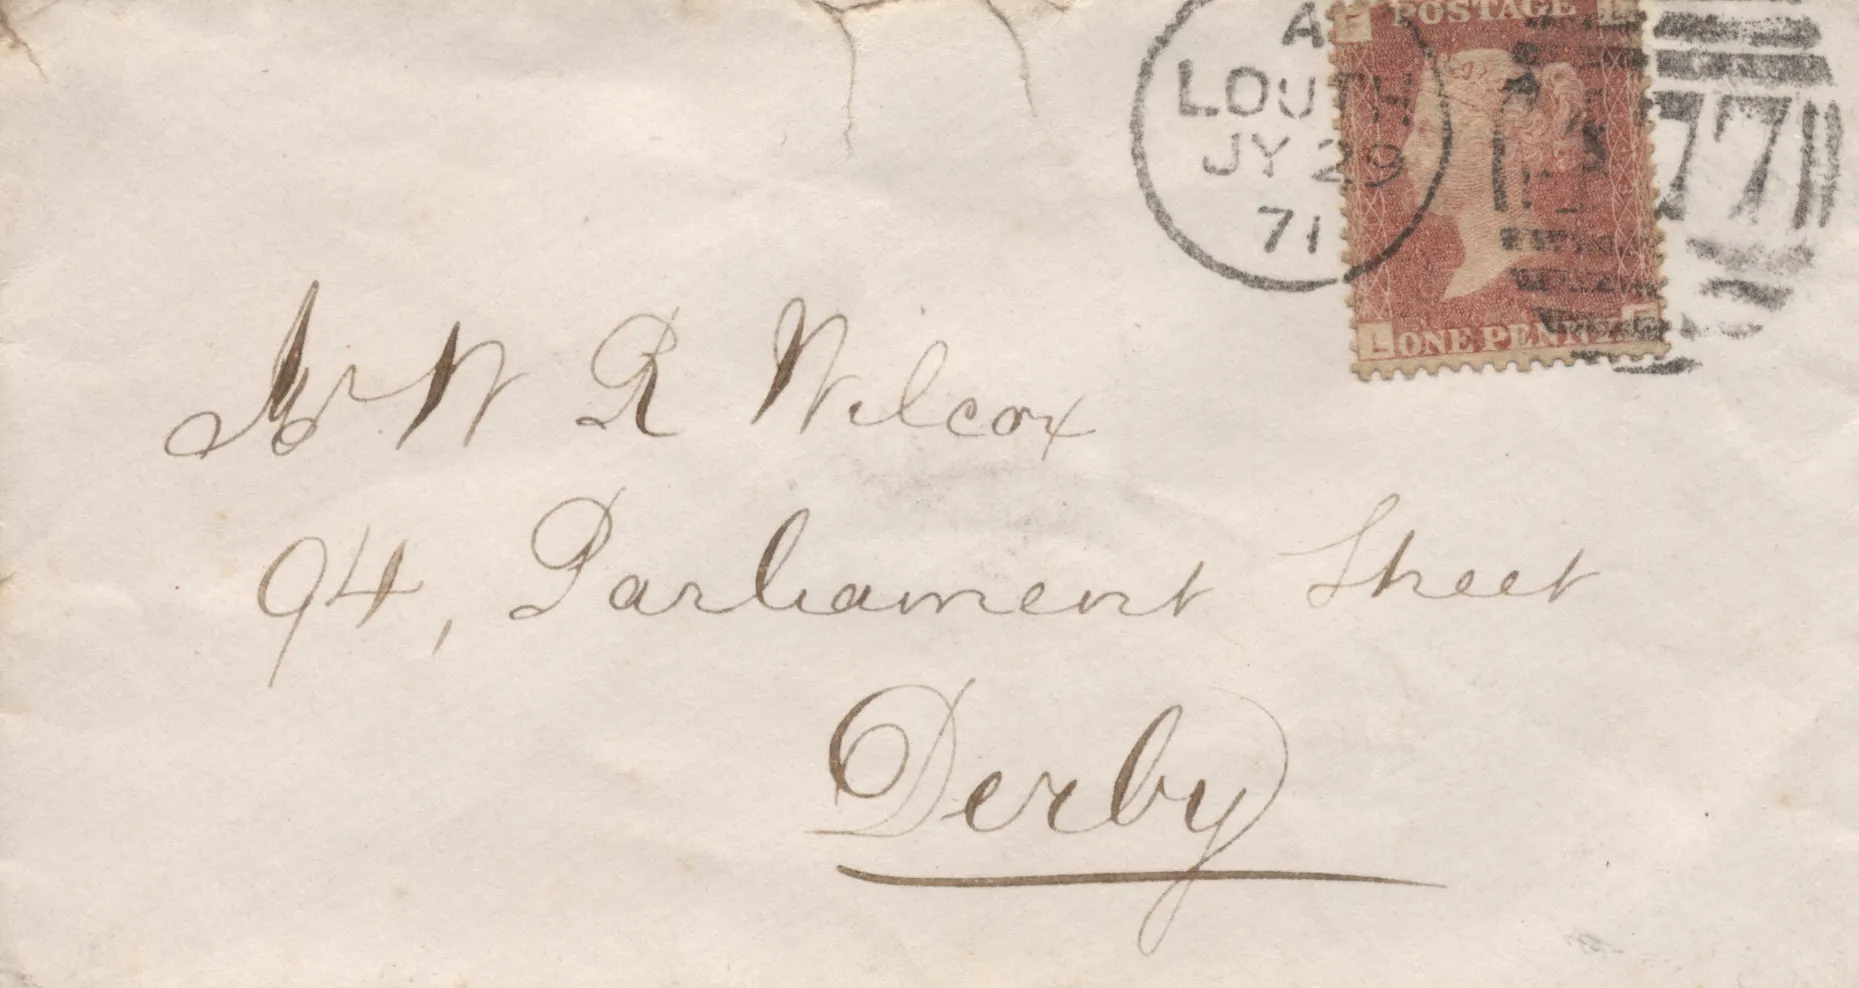 A
LOUTH
JY 29
71
POSTAGE
L ONE PENNY F
77
Mr W R Wilcox
94, Parliament Street
Derby